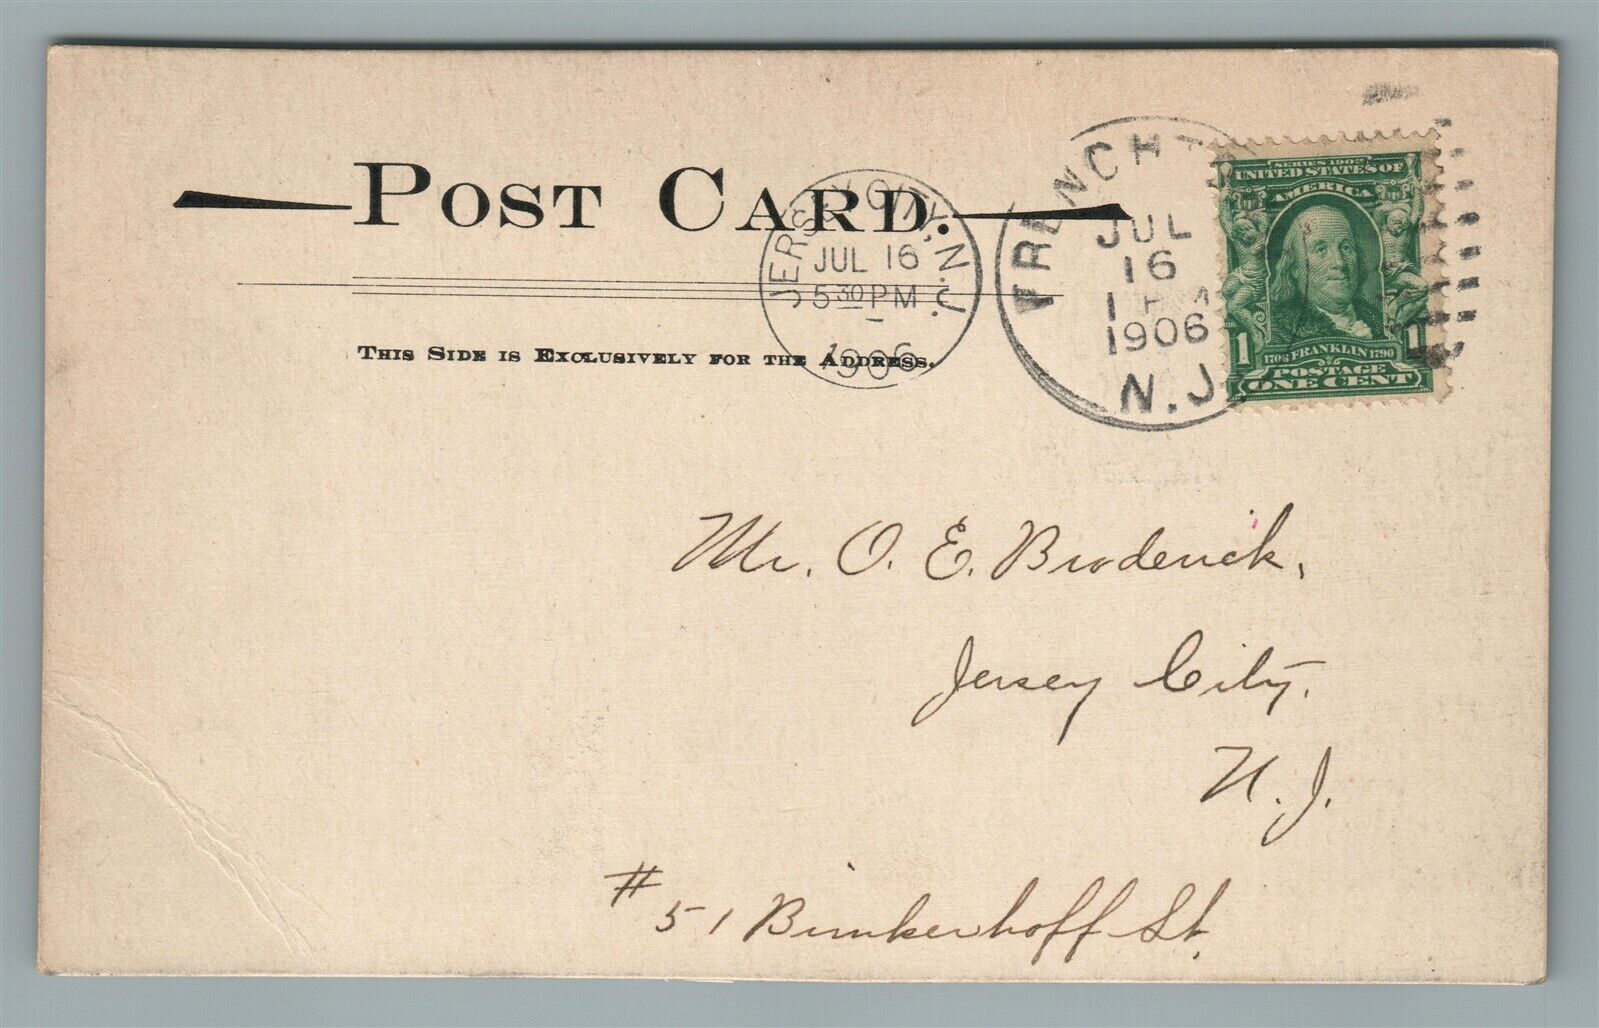 POST CARD.
THIS SIDE IS EXCLUSIVELY FOR THE ADDRESS.
JERSEY CITY, N.J.
JUL 16
5 30 PM
1906
FRENCHT
JUL
16
1 PM
1906
N.J.
SERIES 1902
UNITED STATES OF
AMERICA
1 1
1706 FRANKLIN 1790
POSTAGE
ONE CENT
Mr. O. E. Broderick,
Jersey City,
N. J.
# 51 Brinkerhoff St.